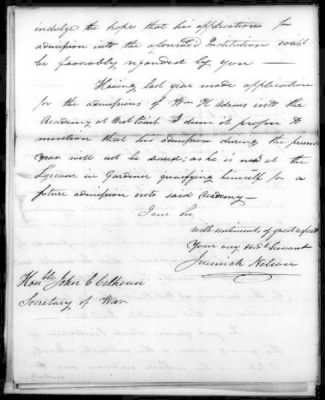 indulge the hope that his application for
admission into the aforesaid Institution will
be favorably regarded by you —
Having last year made application
for the admission of Wm H Adams into the
Academy at West Point I deem it proper to
mention that his admission during the present
year will not be desired; as he is now at the
Lyceum in Gardiner qualifying himself for a
future admission into said Academy —
I am Sir
with sentiments of great respect
Your very Obt Servant
Jeremiah Nelson
Honble John C Calhoun
Secretary of War